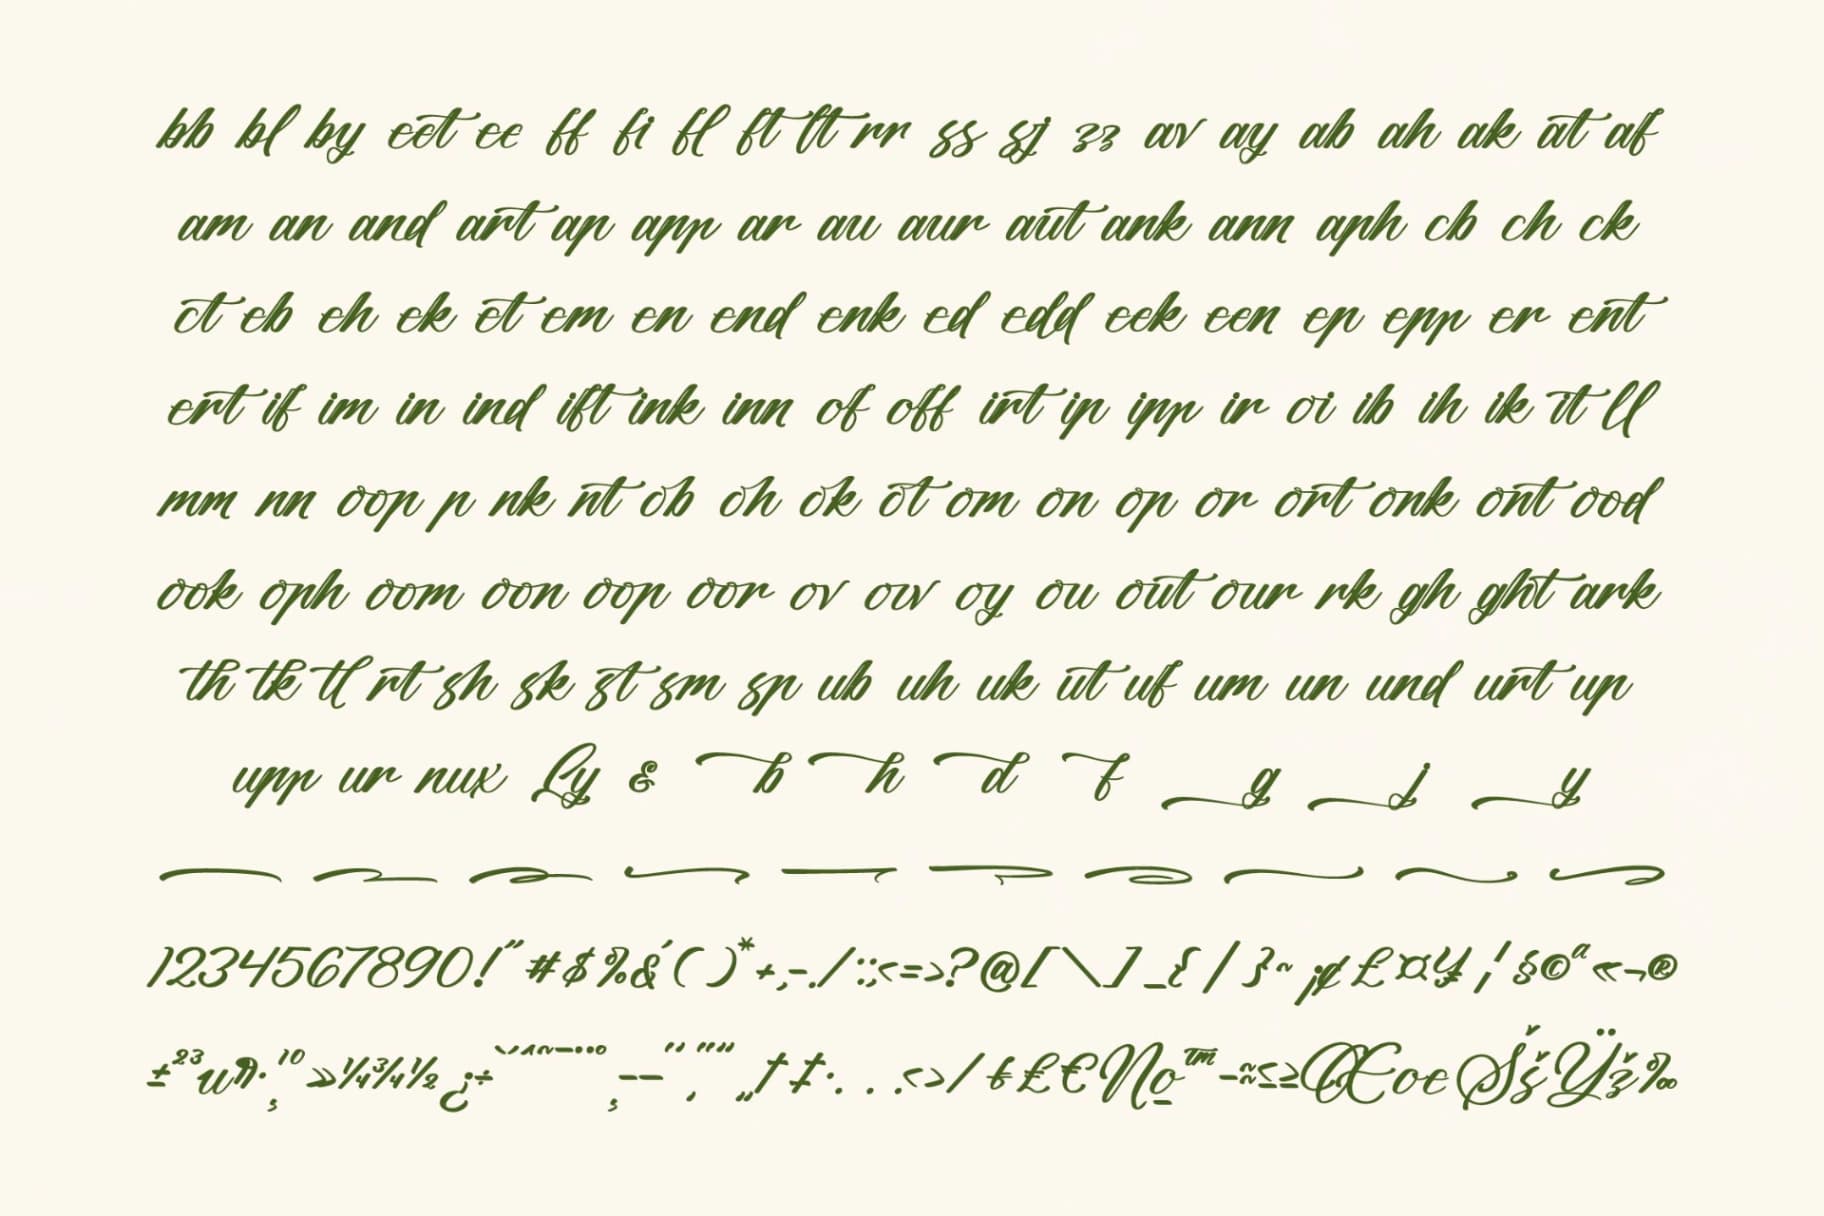 bb bl by eet ee ff fi fl ft tt rr ss sj zz av ay ab ah ak at af
am an and art ap app ar au aur aut ank ann aph cb ch ck
ct eb eh ek et em en end enk ed edd eek een ep epp er ent
ert if im in ind ift ink inn of off irt ip ipp ir oi ib ih ik it ll
mm nn oop p nk nt ob oh ok ot om on op or ort onk ont ood
ook oph oom oon oop oor ov ow oy ou out our rk gh ght ark
th tk tl rt sh sk st sm sp ub uh uk ut uf um un und urt up
upp ur nux Ly & b h d f g j y
1234567890!"#$%&'()*+,-./:;<=>?@[\]_{/}~¡¢£¤¥¦§©ª«¬®
±²³µ¶·¸¹⁰»¼¾½¿÷ˇ˘ˆ˜¯˙¨°¸–—‘’‚“”„†‡•...‹›/₺₤€№™−≈≤≥ŒœŠšŸž‰